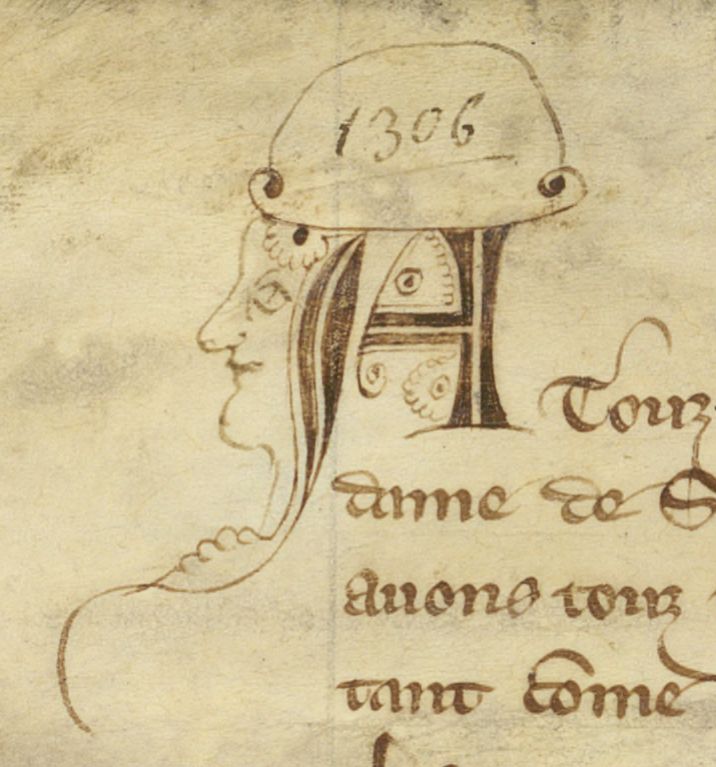 1306
A Touz
dame de S
auons touz
tant cõme